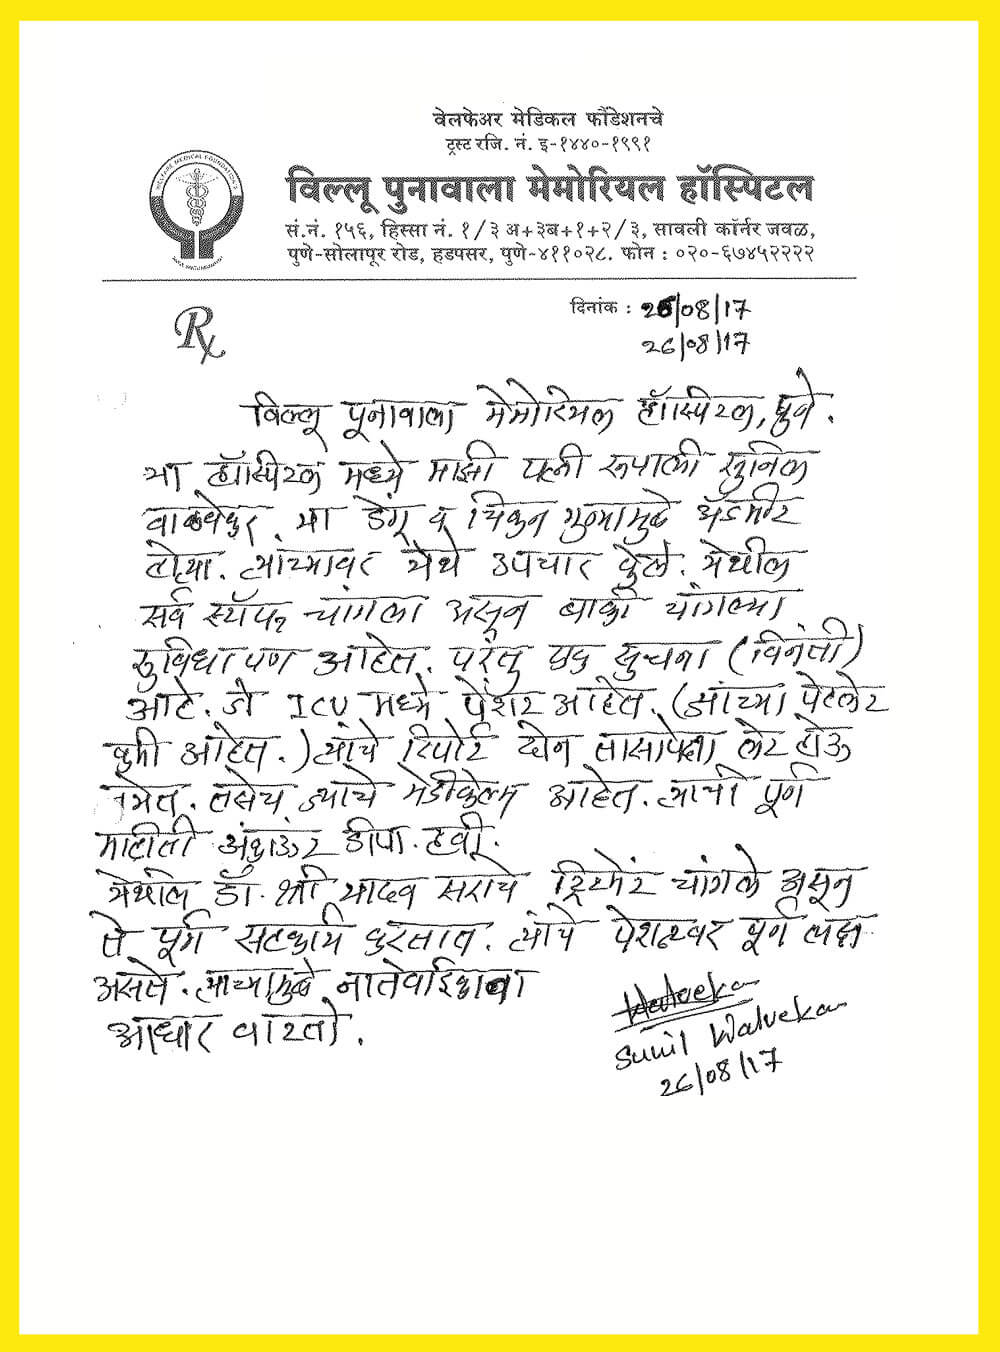 वेलफेअर मेडिकल फौंडेशनचे
ट्रस्ट रजि. नं. इ-१४४०-१९९१
WELFARE MEDICAL FOUNDATION'S
विल्लू पुनावाला मेमोरियल हॉस्पिटल
सं.नं. १५६, हिस्सा नं. १/३ अ+३ब+१+२/३, सावली कॉर्नर जवळ,
पुणे-सोलापूर रोड, हडपसर, पुणे-४११०२८. फोन : ०२०-६७४५२२२२
Rx
दिनांक : 26/08/17
26/08/17
विल्लू पूनावाला मेमोरियल हॉस्पिटल, पुणे.
या हॉस्पिटल मध्ये माझी पत्नी रुपाली सुनिल
वाळवेकर या डेंगू व चिकुन गुन्यामुळे अॅडमीट
होत्या. त्यांच्यावर येथे उपचार केले. येथील
सर्व स्टॉफ चांगला असून बाकी चांगल्या
सुविधा पण आहेत. परंतु एक सुचना (विनंती)
आहे. जे ICU मध्ये पेशंट आहेत. (ज्यांच्या पेटलेट
कमी आहेत.) त्यांचे रिपोर्ट दोन तासापेक्षा लेट होऊ
नयेत. तसेच ज्यांचे मेडीक्लेम आहेत. त्याची पूर्ण
माहीती अकाऊंट डीपा. हवी.
येथील डॉ. श्री यादव सरांचे ट्रिटमेंट चांगले असून
ते पूर्ण सहकार्य करतात. त्यांचे पेशन्टवर पूर्ण लक्ष
असते. त्याच्यामुळे नातेवाईकांना
आधार वाटतो.
Walveka
Sunil Walvekar
26/08/17